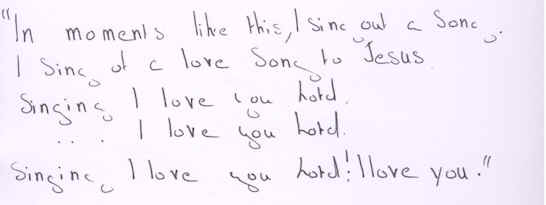 "In moments like this, I sing out a Song.
I Sing of a love Song to Jesus
Singing I love you Lord.
... I love you Lord.
Singing I love you Lord! I love you."